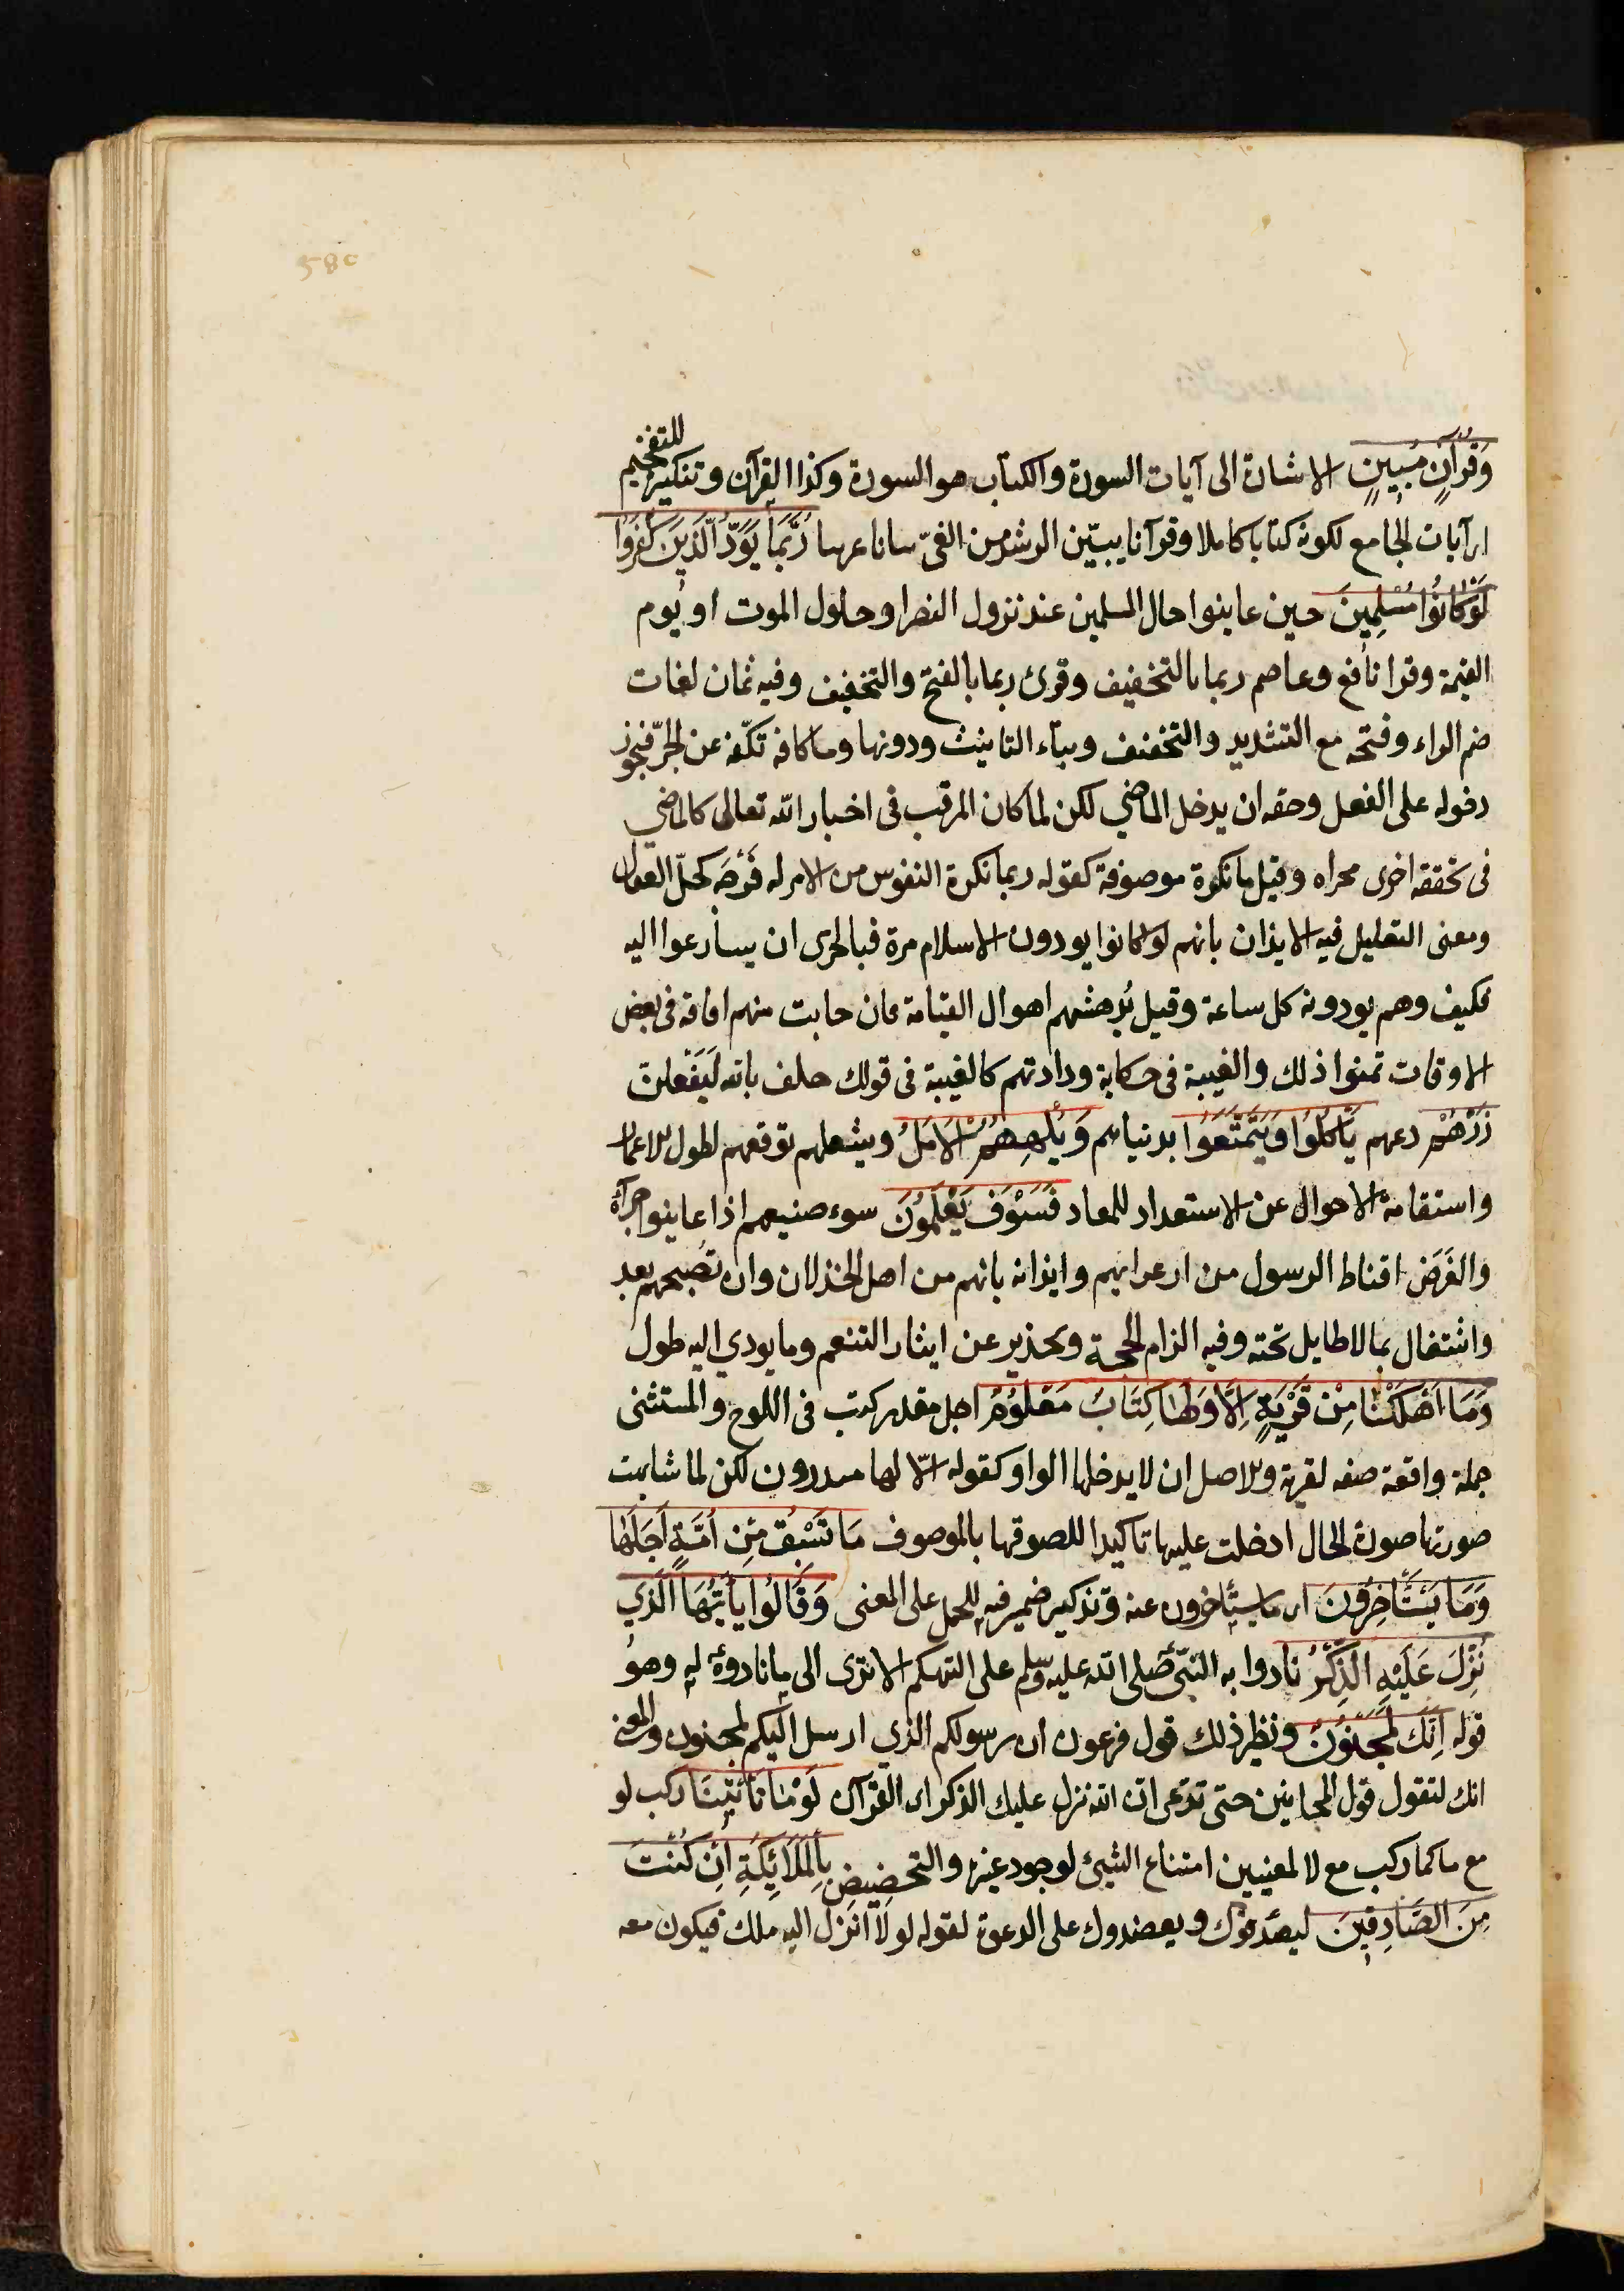 وَقُرْآنٍ مُبِينٍ الاشارة الى آيات السورة والكتاب هو السورة وكذا القرآن وتنكيره للتفخيم
اى آيات الجامع لكونه كتابا كاملا وقرآنا يبيّن الرشد من الغىّ بيانا عربيا رُبَمَا يَوَدُّ الَّذِينَ كَفَرُوا
لَوْ كَانُوا مُسْلِمِينَ حين عاينوا حال المسلمين عند نزول النصر او حلول الموت او يوم
القيمة وقرا نافع وعاصم ربما بالتخفيف وقرئ ربما بالفتح والتخفيف وفيه ثمان لغات
ضم الراء وفتحه مع التشديد والتخفيف وبتاء التانيث ودونها وما كافه تكفّه عن الجرّ فيجوز
دخوله على الفعل وحقه ان يدخل الماضي لكن لما كان المرقب فى اخبار الله تعالى كالماضي
فى تحققه اجرى مجراه وقيل ما نكرة موصوفة كقوله ربما تكره النفوس من الامر له فَرْجَه كحلّ العقال
ومعنى التقليل فيه الايذان بانهم لو كانوا يودون الاسلام مرة فبالحرى ان يسارعوا اليه
فكيف وهم يودونه كل ساعة وقيل تُدهشهم اهوال القيامة فان حانت منهم افاقه فى بعض
الاوقات تمنوا ذلك والغيبة فى حكاية ودادتهم كالغيبة فى قولك حلف بالله لَيَفْعلنّ
ذَرْهُمْ دعهم يَأْكُلُوا وَيَتَمَتَّعُوا بدنياهم وَيُلْهِهِمُ الْاَمَلُ ويشغلهم توقعهم لطول الاعمار
واستقامة الاحوال عن الاستعداد للمعاد فَسَوْفَ يَعْلَمُونَ سوء صنيعهم اذا عاينوا جزآه
والغَرَض اقناط الرسول من ارعوائهم وايذانه بانهم من اهل الخذلان وان نصحهم بعد
واشتغال بمالا طايل تحته وفيه الزام الحجة وتحذير عن ايثار التنعم وما يودي اليه طول
وَمَا اَهْلَكْنَا مِنْ قَرْيَةٍ اِلَّا وَلَهَا كِتَابٌ مَعْلُومٌ اجل مقدر كتب فى اللوح والمستثنى
جملة واقعة صفه لقرية والاصل ان لا يدخلها الواو كقوله الّا لها منذرون لكن لما شابهت
صورتها صورة الحال ادخلت عليها تاكيدا للصوقها بالموصوف مَا تَسْبِقُ مِنْ اُمَّةٍ اَجَلَهَا
وَمَا يَسْتَأْخِرُونَ اى ما يستأخرون عنه وتذكير ضمير فيه للحمل على المعنى وَقَالُوا يَا اَيُّهَا الَّذِي
نُزِّلَ عَلَيْهِ الذِّكْرُ نادوا به النبّى صلى الله عليه وسلم على التهكم الا ترى الى ما نادوه له وهو
قوله اِنَّكَ لَمَجْنُونٌ ونظير ذلك قول فرعون ان رسولكم الذي ارسل اليكم لمجنون والمعنى
انك لتقول قول المجانين حتى تدّعى ان الله نزل عليك الذكر اى القرآن لَوْ مَا تَأْتِينَا ركب لو
مع ما كما ركب مع لا لمعنيين امتناع الشئ لوجود غيره والتحضيض بِالْمَلَائِكَةِ اِنْ كُنْتَ
مِنَ الصَّادِقِينَ ليصدقوك ويعضدوك على الدعوة لقوله لولا انزل اليه ملك فيكون معه